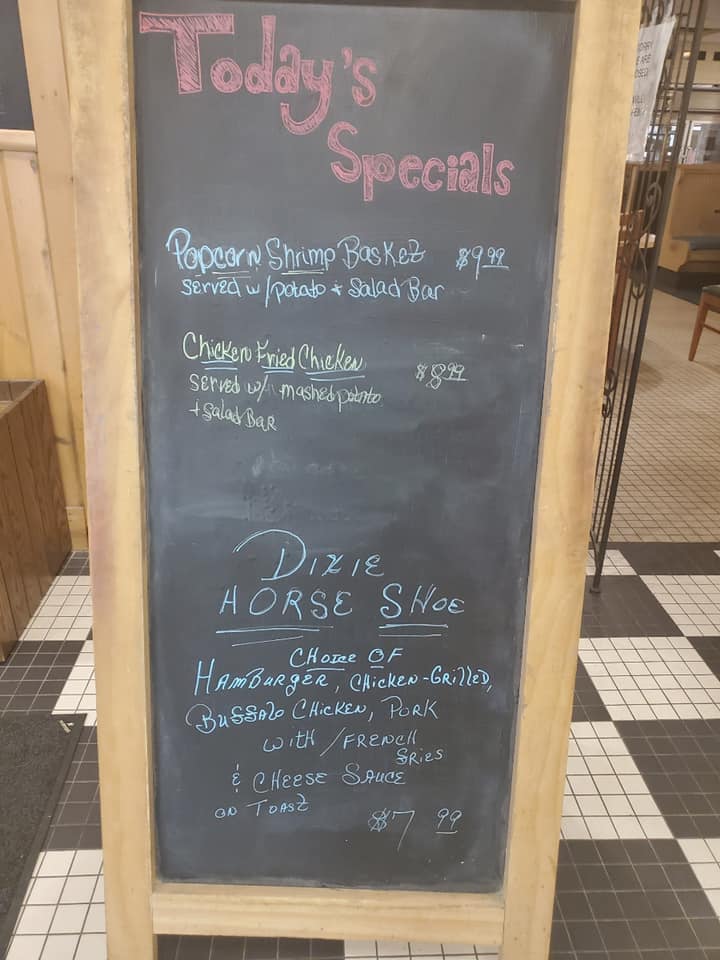 Today's
Specials
Popcorn Shrimp Basket $9.99
served w/potato + Salad Bar
Chicken Fried Chicken
served w/ mashed potato $8.99
+ Salad Bar
Dixie
HORSE SHOE
CHOICE OF
HAMBURGER, CHICKEN-GRILLED,
BUFFALO CHICKEN, PORK
WITH /FRENCH
FRIES
& CHEESE SAUCE
ON TOAST
$7 99